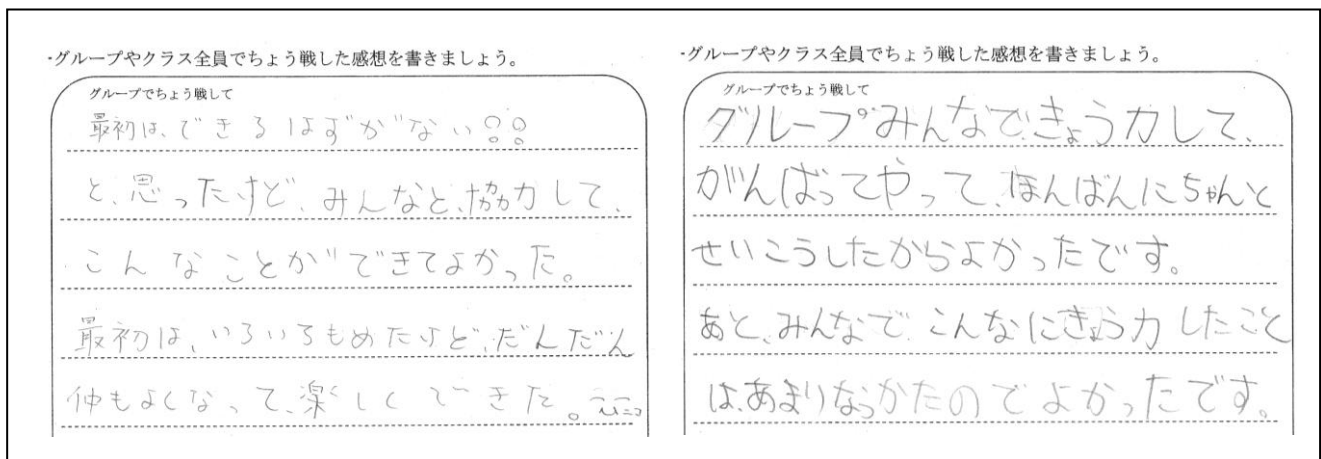 ・グループやクラス全員でちょう戦した感想を書きましょう。
グループでちょう戦して
最初は、できるはずがない!!
と、思ったけど、みんなと、協力して、
こんなことができてよかった。
最初は、いろいろもめたけど、だんだん
仲もよくなって、楽しくできた。
・グループやクラス全員でちょう戦した感想を書きましょう。
グループでちょう戦して
グループみんなで、きょう力して、
がんばってやって、ほんばんにちゃんと
せいこうしたからよかったです。
あと、みんなで、こんなにきょう力したこと
は、あまりなっかたのでよかったです。